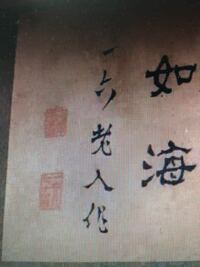 如海
一六老人作